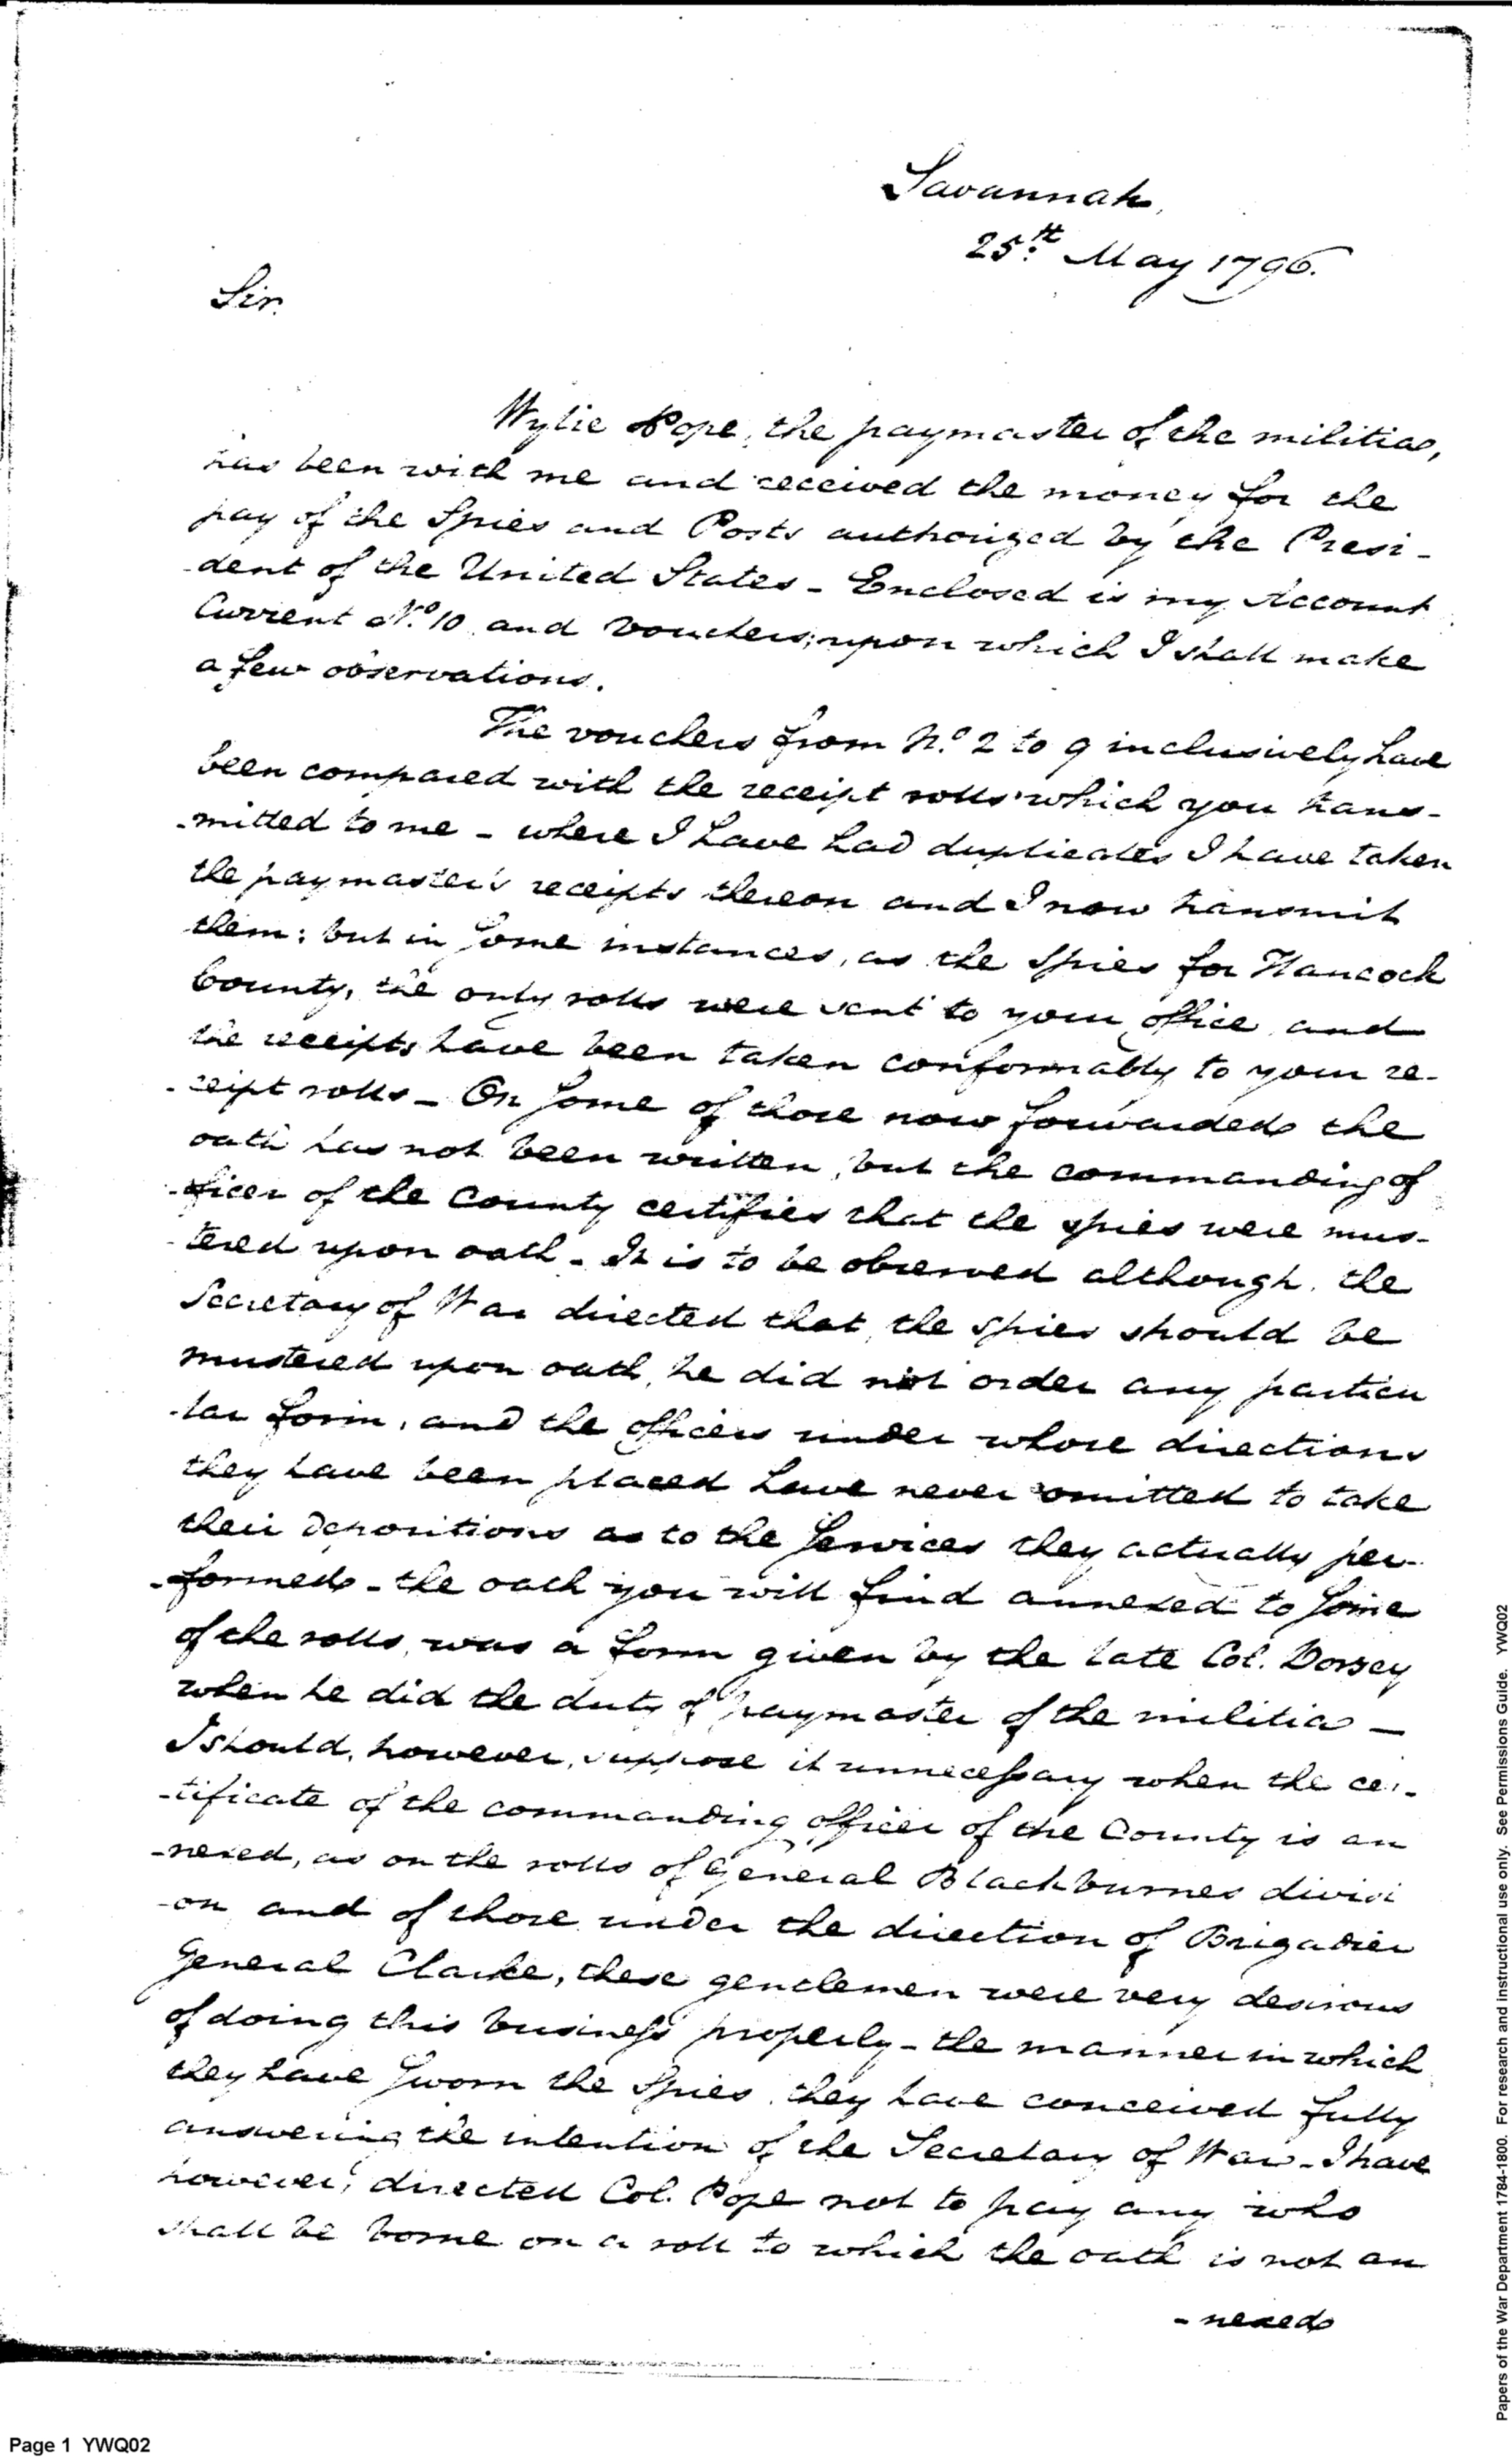 Savannah,
25th. May 1796.
Sir.
Wylie Pope, the paymaster of the militia,
has been with me and received the money for the
pay of the Spies and Posts authorized by the Presi-
-dent of the United States - Enclosed is my Account
Current No. 10 and vouchers; upon which I shall make
a few observations.
The vouchers from No. 2 to 9 inclusively have
been compared with the receipt rolls which you trans-
-mitted to me - where I have had duplicates I have taken
the paymaster's receipts thereon and I now transmit
them: but in some instances, as the Spies for Hancock
County, the only rolls were sent to your office and
the receipts have been taken conformably to your re-
-ceipt rolls - On some of those now forwarded the
oath has not been written, but the commanding of
-ficer of the County certifies that the spies were mus-
-tered upon oath - It is to be observed although, the
Secretary of War directed that the spies should be
mustered upon oath, he did not order any particu
-lar form, and the officers under whose directions
they have been placed have never omitted to take
their depositions as to the services they actually per-
-formed - the oath you will find annexed to some
of the rolls, was a form given by the late Col. Dorsey
when he did the duty of paymaster of the militia -
I should, however, suppose it unnecessary when the cer-
-tificate of the commanding officer of the County is an
-nexed, as on the rolls of General Blackburnes divisi
-on and of those under the direction of Brigadier
General Clarke, these gentlemen were very desirous
of doing this business properly - the manner in which
they have sworn the Spies, they have conceived fully
answering the intention of the Secretary of War - I have
however, directed Col. Pope not to pay any who
shall be borne on a roll to which the oath is not an
- nexed
Page 1 YWQ02
Papers of the War Department 1784-1800. For research and instructional use only. See Permissions Guide. YWQ02